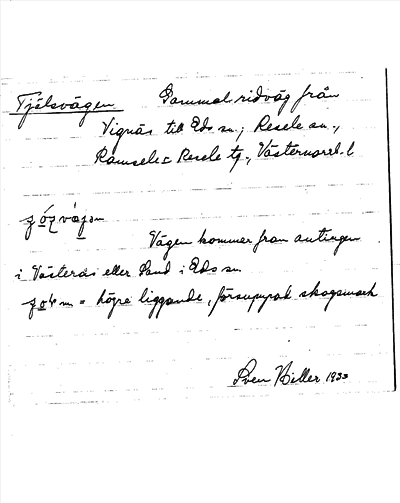 Tjälsvägen Gammal ridväg från
Vignäs till Eds sn.; Resele sn.,
Ramsele o Resele tg., Västernorrl. l
Vägen kommer fran antingen
i Västerås eller Sand i Eds sn
= högre liggande, försumpad skogsmark
Sven Hiller 1933